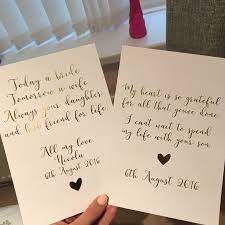 Today a bride
Tomorrow a wife
Always your daughter
and friend for life.
All my love
Nicola
6th August 2016
My heart is so grateful
for all that you've done.
I can't wait to spend
my life with your son.
6th August 2016